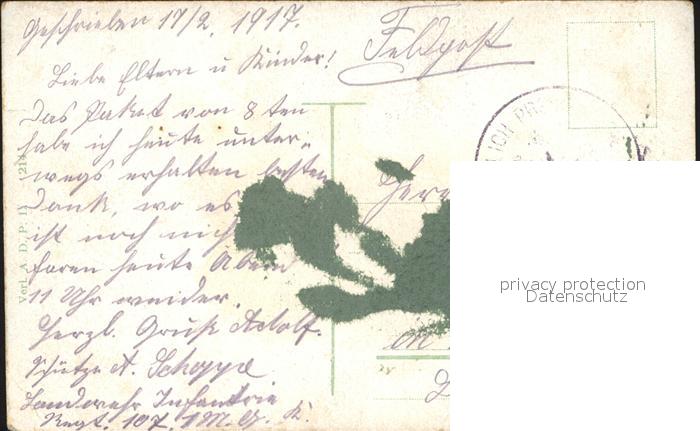 Geschrieben 17/2. 1917.
Feldpost
Liebe Eltern u Kinder!
Das Paket von 8 ten
habe ich heute unter-
wegs erhalten besten
Dank, wo es
ist noch nich
faren heute Abend
11 Uhr weider.
Herzl. Gruß Adolf.
Schütze A. Schoppe
Landwehr Infantrie
Regt. 107. 1 M. G. K.
Verl. A. D. P. D. 214
Herr
LICH PR
privacy protection
Datenschutz